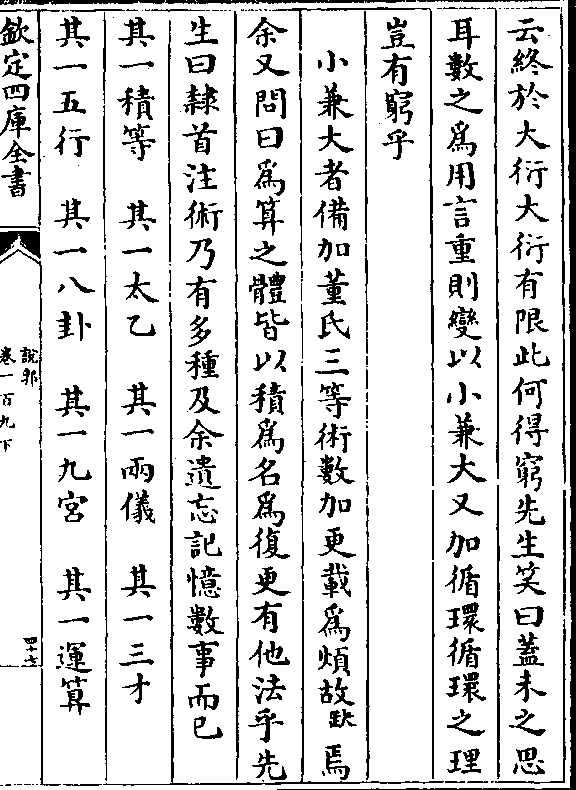 云終於大衍大衍有限此何得窮先生笑曰蓋未之思
耳數之為用言重則變以小兼大又加循環循環之理
豈有窮乎
小兼大者備加董氏三等術數加更載為煩故缺焉
余又問曰為算之體皆以積為名為復更有他法乎先
生曰隸首注術乃有多種及余遺忘記憶數事而已
其一積等　其一太乙　其一兩儀　其一三才
其一五行　其一八卦　其一九宮　其一運算
欽定四庫全書
說郛
卷一百九下
四十七